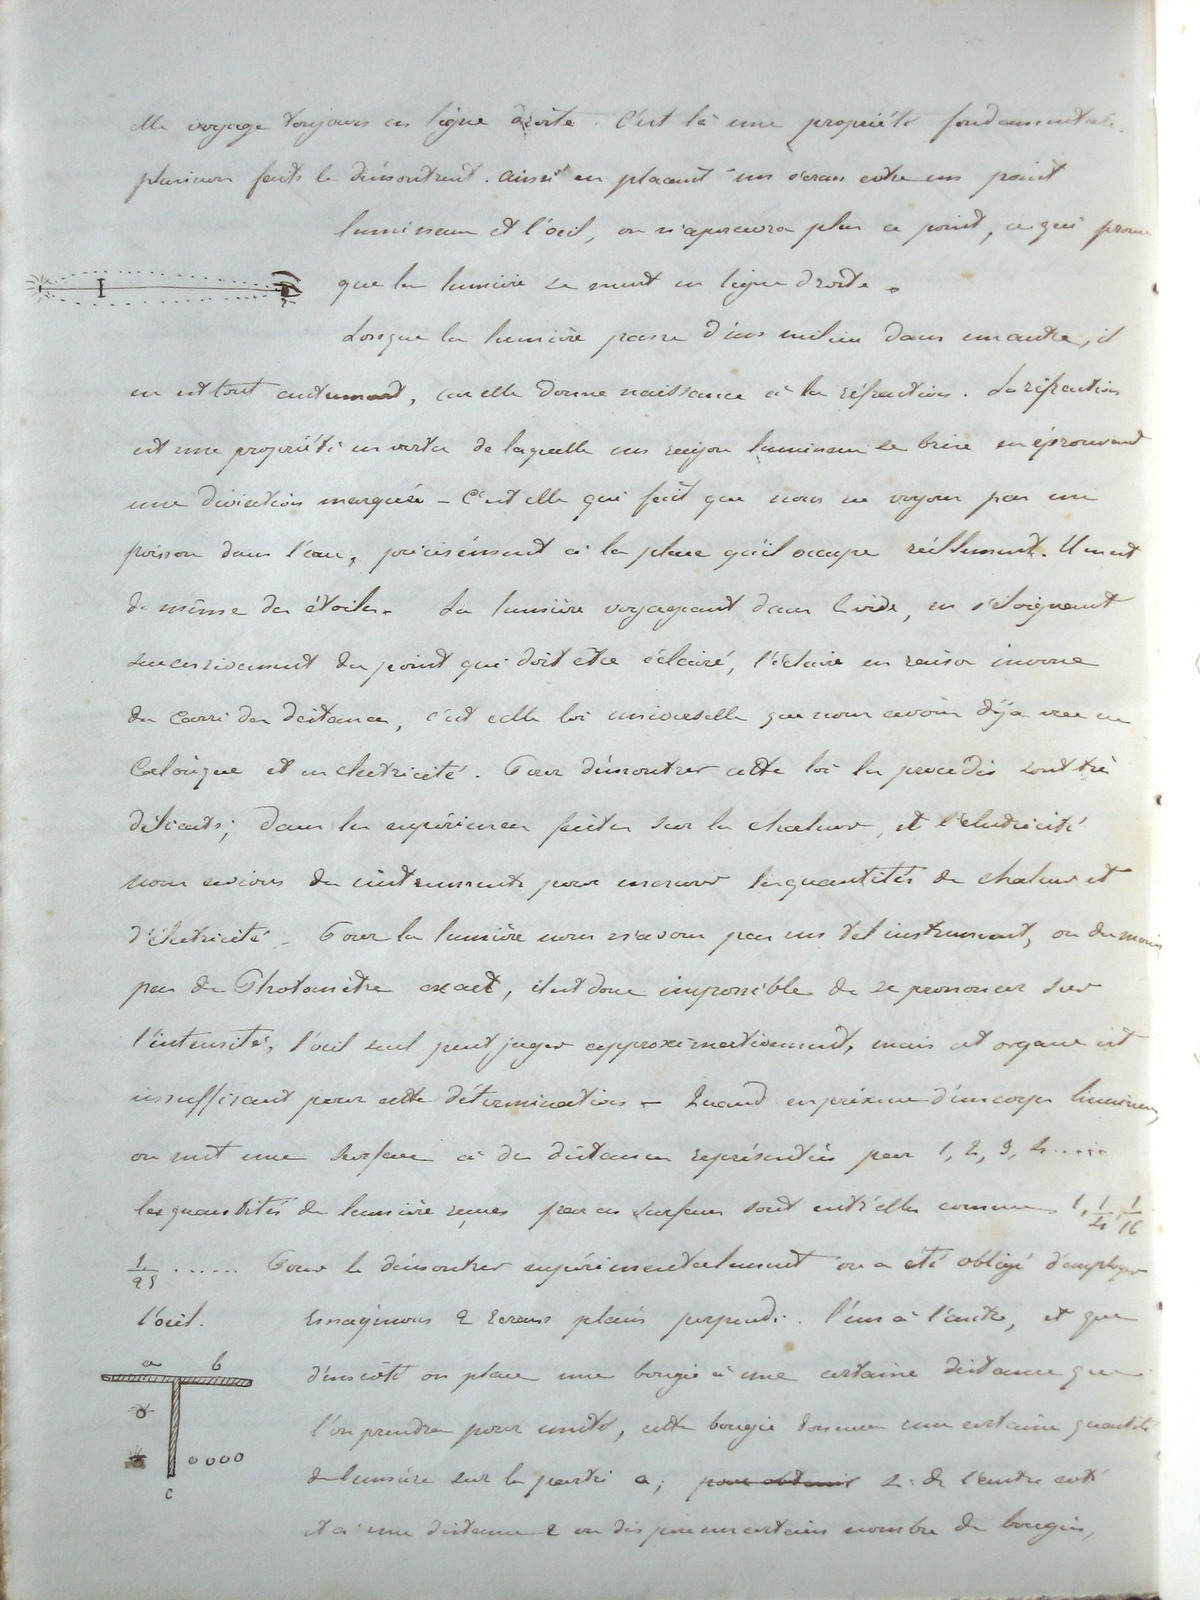 elle voyage toujours en ligne droite. C'est là une propriété fondamentale.
plusieurs faits le démontrent. Ainsi en plaçant un écran entre un point
lumineux et l'oeil, on n'apercevra plus ce point, ce qui prouve
que la lumière se meut en ligne droite.
Lorsque la lumière passe d'un milieu dans un autre, il
en est tout autrement, car elle donne naissance à la réfraction. La réfraction
est une propriété en vertu de laquelle un rayon lumineux se brise en éprouvant
une déviation marquée – C'est elle qui fait que nous ne voyons pas un
poisson dans l'eau, précisément à la place qu'il occupe réellement. Il en est
de même des étoiles. La lumière voyageant dans le vide, en s'éloignant
successivement du point qui doit être éclairé, l'éclaire en raison inverse
du carré des distances, c'est cette loi universelle que nous avons déjà vue en
Calorique et en électricité. Pour démontrer cette loi les procédés sont très
délicats; dans les expériences faites sur la chaleur, et l'électricité
nous avions des instruments pour mesurer les quantités de chaleur et
d'électricité – Pour la lumière nous n'avons pas un tel instrument, ou du moins
pas de Photomètre exact, il est donc impossible de se prononcer sur
l'intensité, l'oeil seul peut juger approximativement, mais cet organe est
insuffisant pour cette détermination – Quand en présence d'un corps lumineux
on met une surface à des distances représentées par 1, 2, 3, 4.....
les quantités de lumière reçues par ces surfaces sont entr'elles comme 1, 1/4, 1/16
1/25 ...... Pour le démontrer expérimentalement on a été obligé d'employer
l'oeil. Imaginons 2 écrans plans perpendi. l'un à l'autre, et que
a b
d'un côté on place une bougie à une certaine distance que
l'on prendra pour unité, cette bougie donnera une certaine quantité
de lumière sur la partie a; pour obtenir 2. de l'autre coté
c
et à une distance 2 on dispose un certain nombre de bougies,